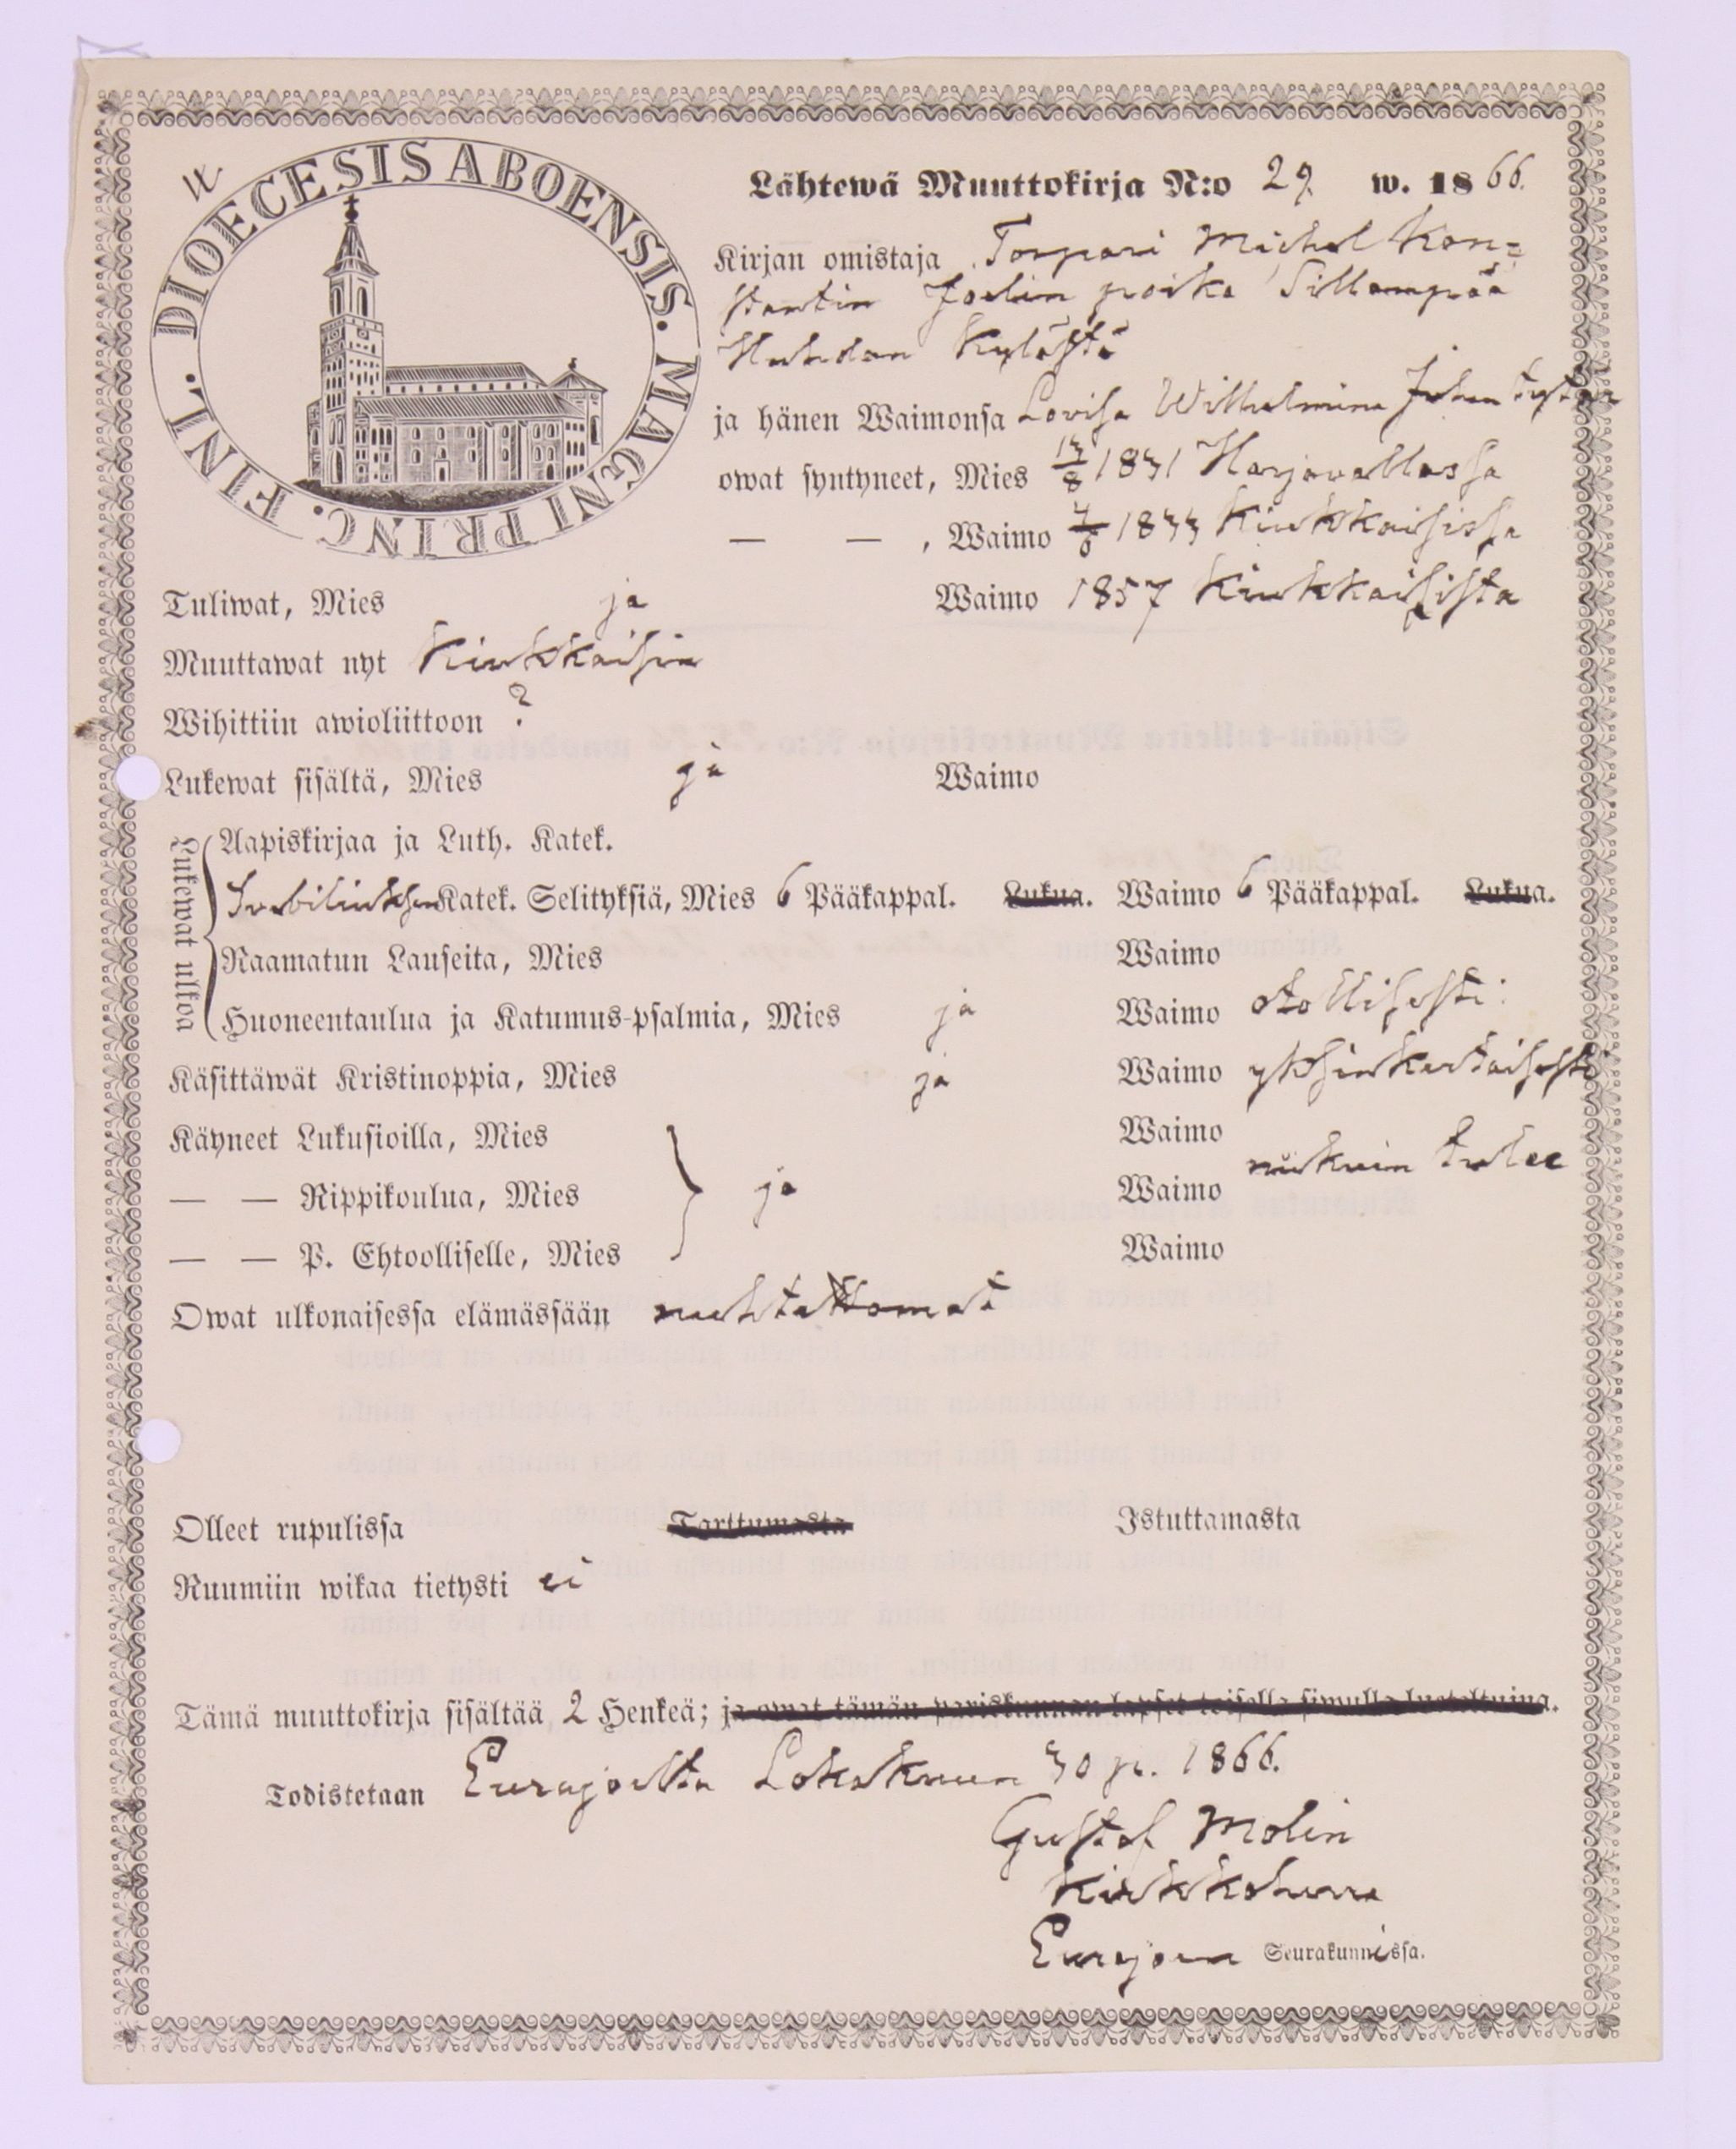 DIOECESIS ABOENSIS. MAGNI PRINC. FINL.
Lähtewä Muuttokirja N:o 29. w. 1866.
Kirjan omistaja Torpari Michel Kon-
stantin Joelin poika Sillanpää
Huhdan Kylästä
ja hänen Waimonsa Lovisa Wilhelmina Juhan tytär
owat syntyneet, Mies 1831 Harjavallassa
— — , Waimo 1833 Kiukkaisissa
Tuliwat, Mies ja Waimo 1857 Kiukkaisista
Muuttawat nyt Kiukkaisiin
Wihittiin awioliittoon ?
Lukewat sisältä, Mies ja Waimo
Lukewat ulkoa
Aapiskirjaa ja Luth. Katek.
Katek. Selityksiä, Mies 6 Pääkappal. Lukua. Waimo 6 Pääkappal. Lukua.
Raamatun Lauseita, Mies Waimo
Huoneentaulua ja Katumus-psalmia, Mies ja Waimo otollisesti
Käsittäwät Kristinoppia, Mies ja Waimo yksinkertaisesti
Käyneet Lukusioilla, Mies Waimo
— — Rippikoulua, Mies ja Waimo niinkuin tulee
— — P. Ehtoolliselle, Mies Waimo
Owat ulkonaisessa elämässään nuhtettomat
Olleet rupulissa Tarttumasta Istuttamasta
Ruumiin wikaa tietysti ei
Tämä muuttokirja sisältää 2 Henkeä; ja owat tämän pariskunnan lapset toisella siwulla lueteltuina.
Todistetaan Eurajoelta Lokakuun 30 p. 1866.
Gustaf Molin
Kirkkoherra
Eurajoen Seurakunnissa.